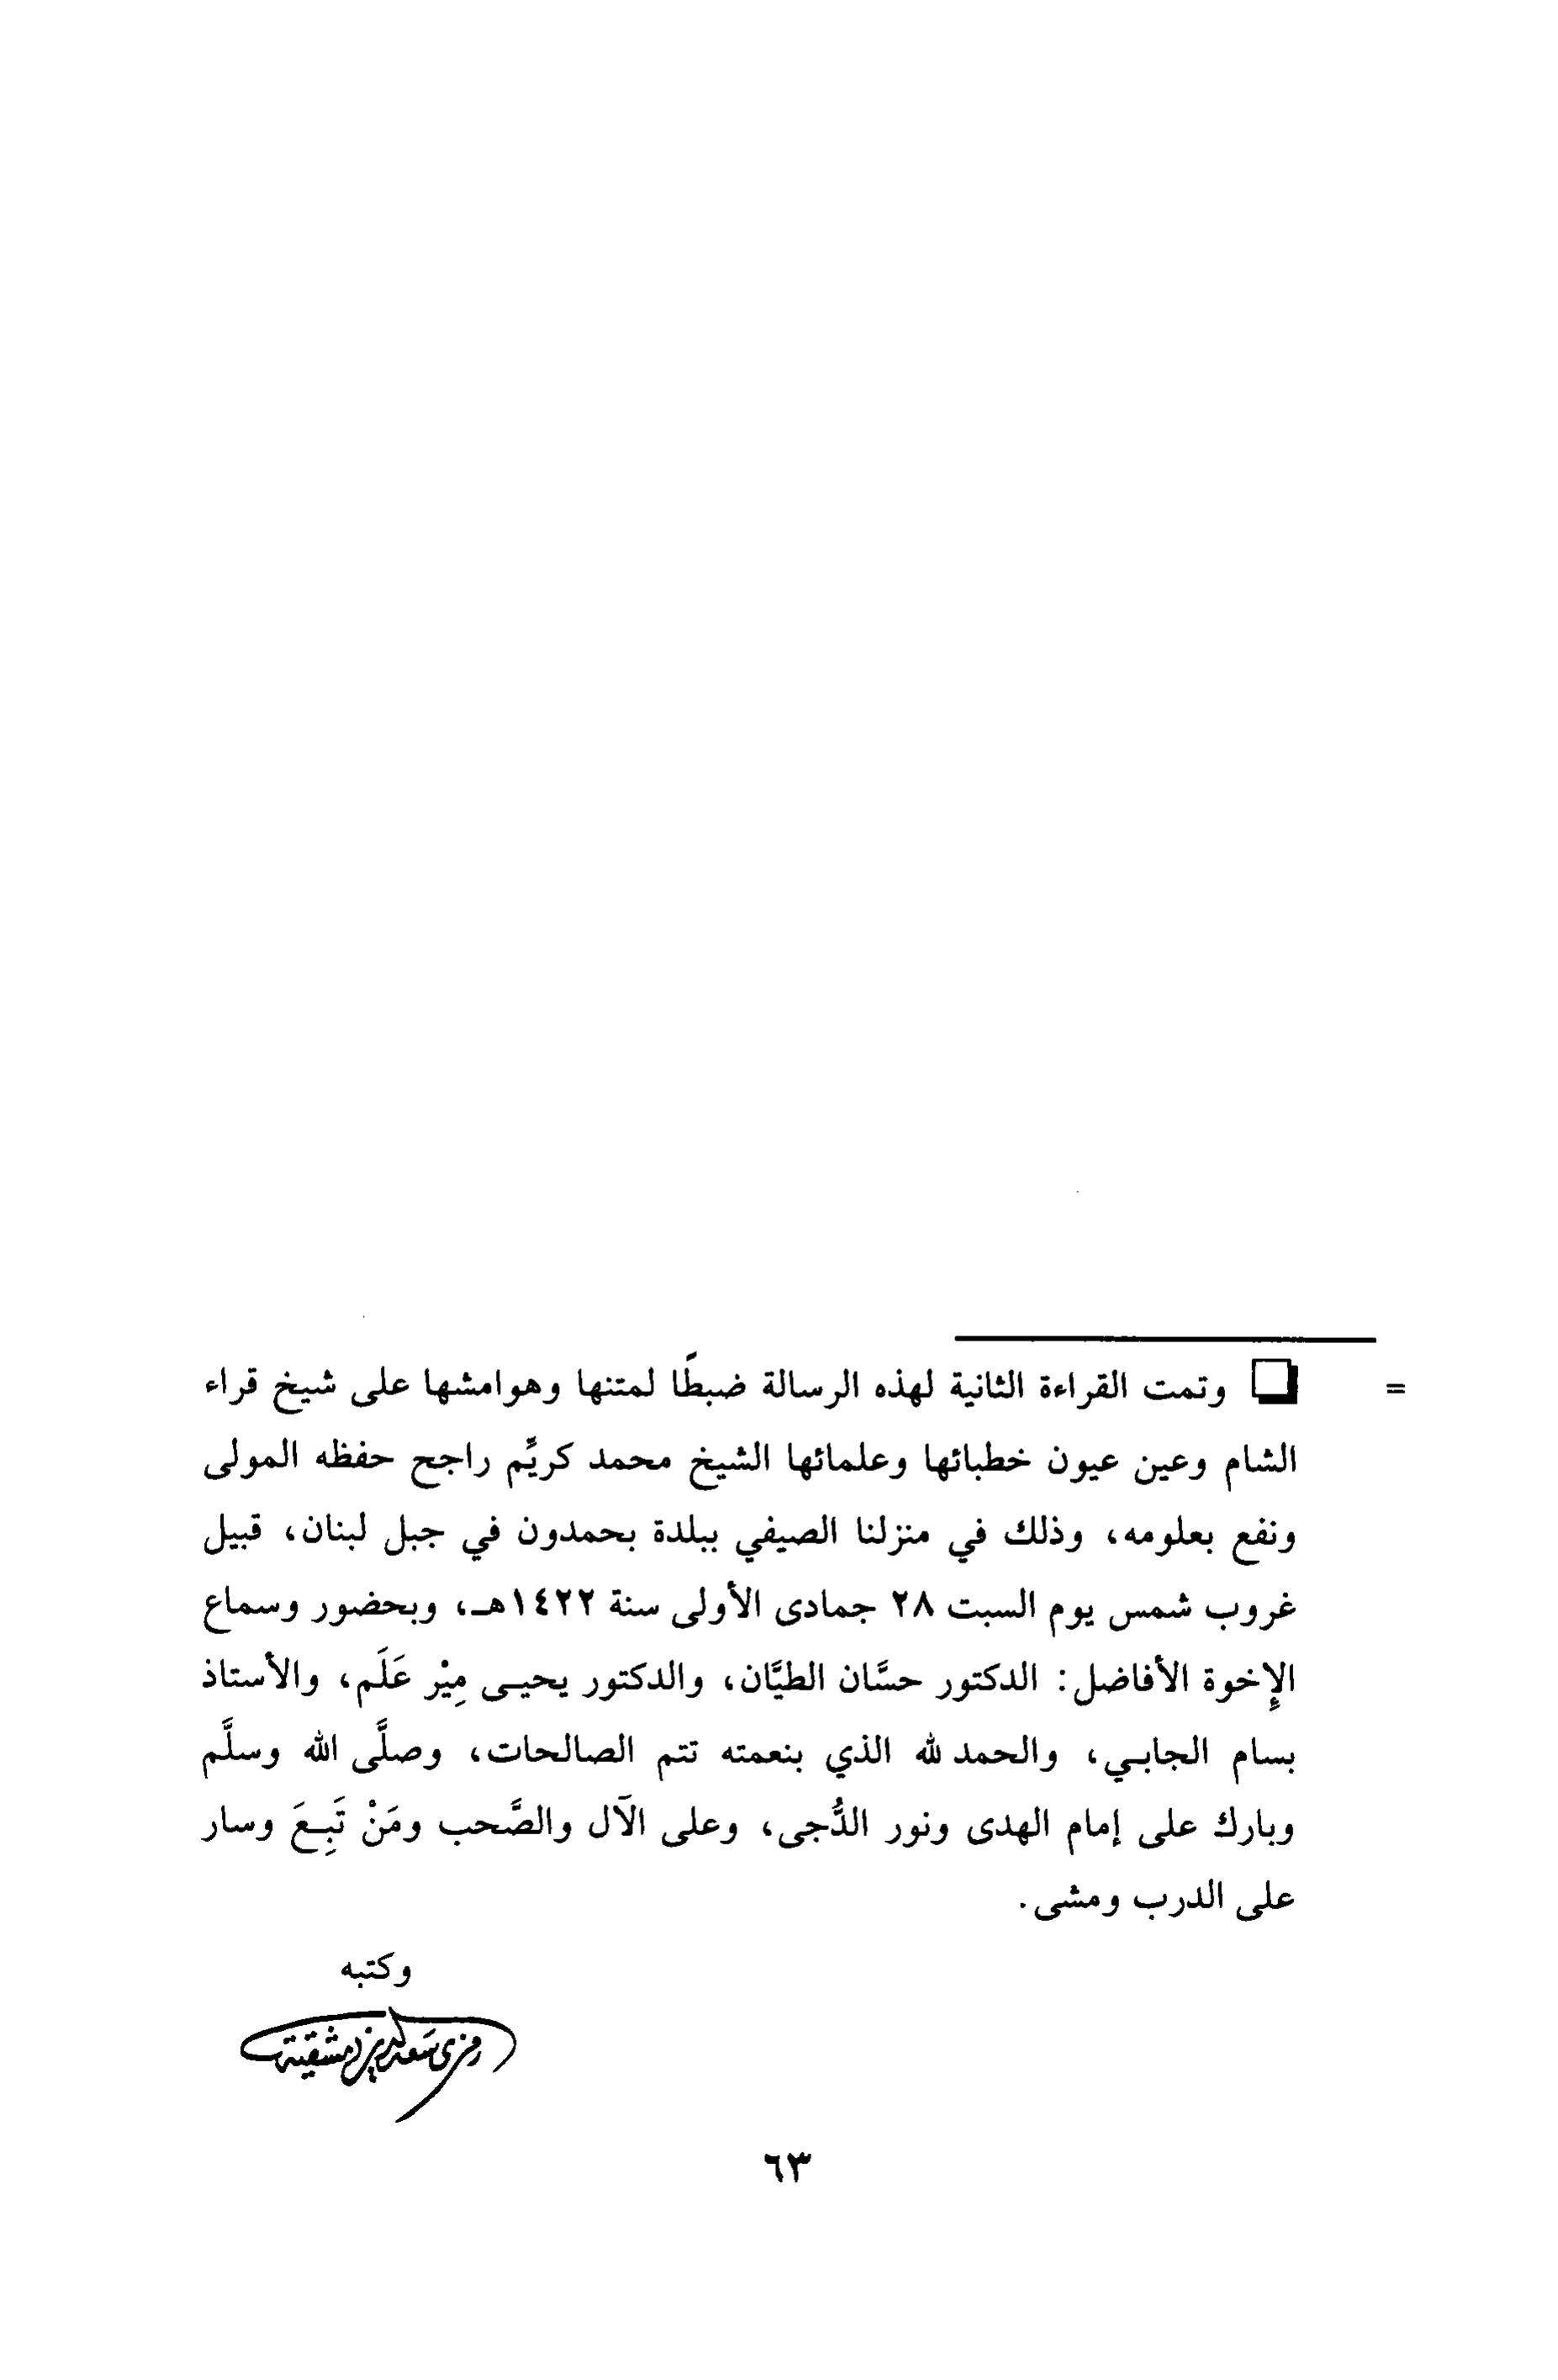 = ❏ وتمت القراءة الثانية لهذه الرسالة ضبطًا لمتنها وهوامشها على شيخ قراء
الشام وعين عيون خطبائها وعلمائها الشيخ محمد كريِّم راجح حفظه المولى
ونفع بعلومه، وذلك في منزلنا الصيفي ببلدة بحمدون في جبل لبنان، قبيل
غروب شمس يوم السبت ٢٨ جمادى الأولى سنة ١٤٢٢هـ، وبحضور وسماع
الإخوة الأفاضل: الدكتور حسَّان الطيَّان، والدكتور يحيـى مِيْر عَلَم، والأستاذ
بسام الجابـي، والحمد لله الذي بنعمته تتم الصالحات، وصلَّى الله وسلَّم
وبارك على إمام الهدى ونور الدُّجى، وعلى الآل والصَّحب ومَنْ تَبِـعَ وسار
على الدرب ومشى.
وكتبه
رمزي سعد الدين دمشقية
٦٣